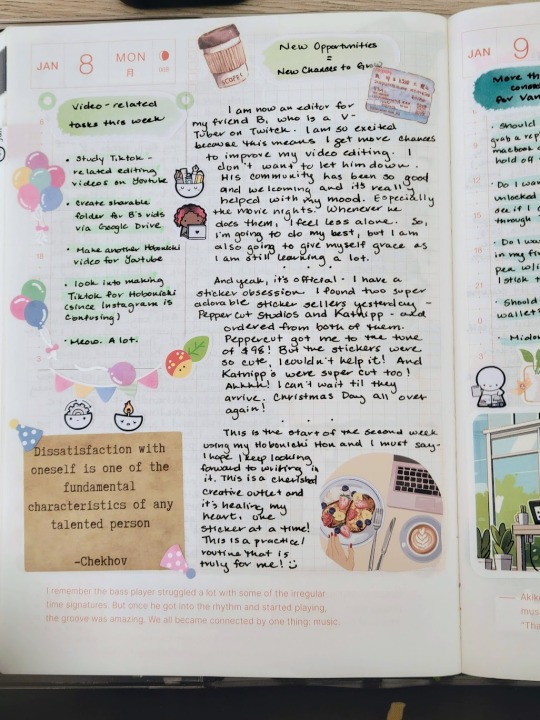 JAN 8 MON
月
008
New Opportunities
=
New Chances to Grow
Video-related
tasks this week
• Study Tiktok-
related editing
videos on Youtube
• Create sharable
folder for B's vids
via Google Drive
• Make another Hobonichi
video for Youtube
• look into making
Tiktok for Hobonichi
(since Instagram is
confusing)
• Meow. A lot.
I am now an editor for
my friend B, who is a V-
Tuber on Twitch. I am so excited
because this means I get more chances
to improve my video editing. I
don't want to let him down.
His community has been so good
and welcoming and it's really
helped with my mood. Especially
the movie nights. Whenever he
does them, I feel less alone.. So,
i'm going to do my best, but I am
also going to give myself grace as
I am still learning a lot.
And yeah, it's official - I have a
sticker obsession. I found two super
adorable sticker sellers yesterday -
Peppercut Studios and Katnipp - and
ordered from both of them.
Peppercut got me to the tune
of $98! But the stickers were
so cute, I couldn't help it! And
Katnipp's were super cut too!
Ahhhh! I can't wait til they
arrive. Christmas Day all over
again!
This is the start of the second week
using my Hobonichi Hon and I must say-
I hope I keep looking
forward to writing in
it. This is a cherished
creative outlet and
it's healing my
heart, one
sticker at a time!
This is a practice/
routine that is
truly for me! :)
Dissatisfaction with
oneself is one of the
fundamental
characteristics of any
talented person
-Chekhov
I remember the bass player struggled a lot with some of the irregular
time signatures. But once he got into the rhythm and started playing,
the groove was amazing. We all became connected by one thing: music.
JAN 9
More th
conso
for Van
• Should
grab a rep
macbook
hold off
• Do I wa
unlocked
see if I
through
• Do I wa
in my fir
pen wit
I stick t
• Should
wallet
• Midor
Akik
mus
"Tha